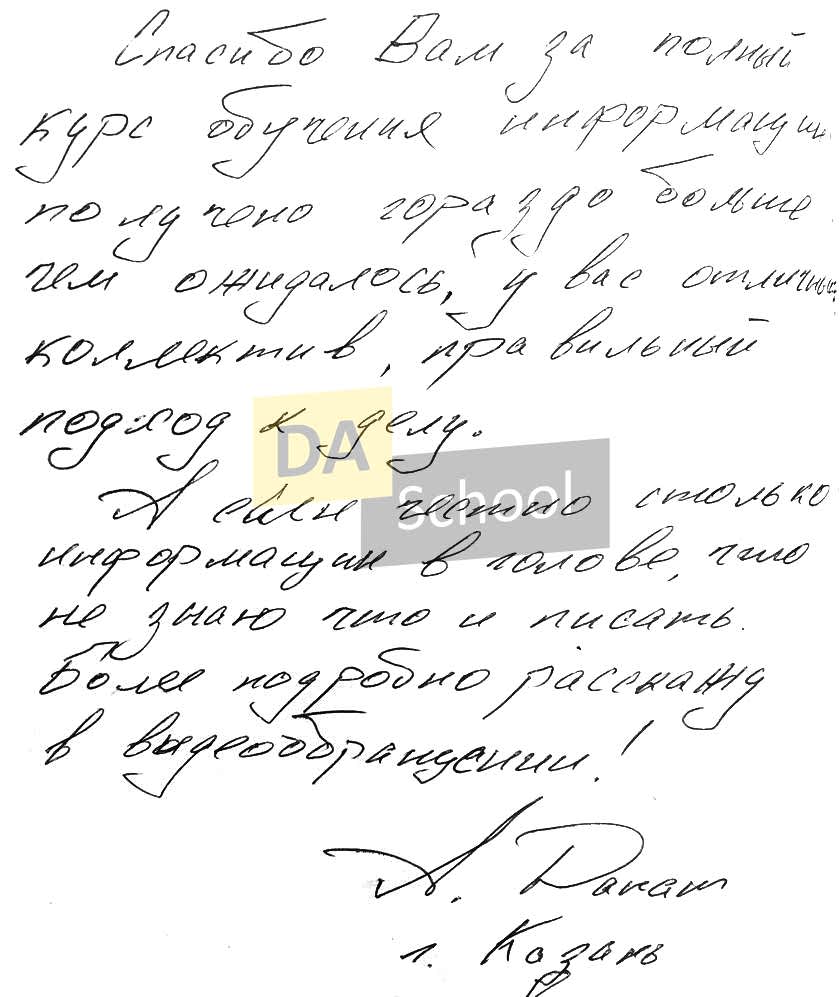 Спасибо Вам за полный
курс обучения информации
получено гораздо больше
чем ожидалось, у вас отличный
коллектив, правильный
подход к делу.
DA
School
А если честно столько
информации в голове, что
не знаю что и писать.
Более подробно расскажу
в видеообращении!
А.
г. Казань